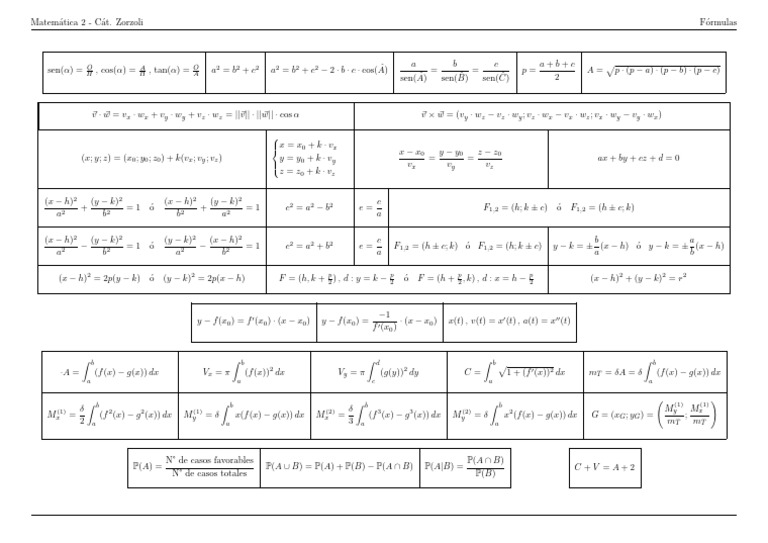 Matemática 2 - Cát. Zorzoli Fórmulas
sen(α) = O/H , cos(α) = A/H , tan(α) = O/A a² = b² + c² a² = b² + c² − 2 · b · c · cos(Â) a/sen(Â) = b/sen(B̂) = c/sen(Ĉ) p = (a + b + c)/2 A = √(p · (p − a) · (p − b) · (p − c))
v⃗ · w⃗ = vₓ · wₓ + v_y · w_y + v_z · w_z = ||v⃗|| · ||w⃗|| · cos α v⃗ × w⃗ = (v_y · w_z − v_z · w_y; v_z · w_x − v_x · w_z; v_x · w_y − v_y · w_x)
(x; y; z) = (x₀; y₀; z₀) + k(v_x; v_y; v_z) { x = x₀ + k · v_x y = y₀ + k · v_y z = z₀ + k · v_z (x − x₀)/v_x = (y − y₀)/v_y = (z − z₀)/v_z ax + by + cz + d = 0
(x − h)²/a² + (y − k)²/b² = 1 ó (x − h)²/b² + (y − k)²/a² = 1 c² = a² − b² e = c/a F₁,₂ = (h; k ± c) ó F₁,₂ = (h ± c; k)
(x − h)²/a² − (y − k)²/b² = 1 ó (y − k)²/a² − (x − h)²/b² = 1 c² = a² + b² e = c/a F₁,₂ = (h ± c; k) ó F₁,₂ = (h; k ± c) y − k = ± b/a (x − h) ó y − k = ± a/b (x − h)
(x − h)² = 2p(y − k) ó (y − k)² = 2p(x − h) F = (h, k + p/2) , d : y = k − p/2 ó F = (h + p/2, k) , d : x = h − p/2 (x − h)² + (y − k)² = r²
y − f(x₀) = f′(x₀) · (x − x₀) y − f(x₀) = −1/f′(x₀) · (x − x₀) x(t) , v(t) = x′(t) , a(t) = x″(t)
·A = ∫ₐᵇ (f(x) − g(x)) dx Vₓ = π ∫ₐᵇ (f(x))² dx V_y = π ∫_c^d (g(y))² dy C = ∫ₐᵇ √(1 + (f′(x))²) dx m_T = δA = δ ∫ₐᵇ (f(x) − g(x)) dx
M_x^(1) = δ/2 ∫ₐᵇ (f²(x) − g²(x)) dx M_y^(1) = δ ∫ₐᵇ x(f(x) − g(x)) dx M_x^(2) = δ/3 ∫ₐᵇ (f³(x) − g³(x)) dx M_y^(2) = δ ∫ₐᵇ x²(f(x) − g(x)) dx G = (x_G; y_G) = (M_y^(1)/m_T; M_x^(1)/m_T)
ℙ(A) = N° de casos favorables/N° de casos totales ℙ(A ∪ B) = ℙ(A) + ℙ(B) − ℙ(A ∩ B) ℙ(A|B) = ℙ(A ∩ B)/ℙ(B) C + V = A + 2